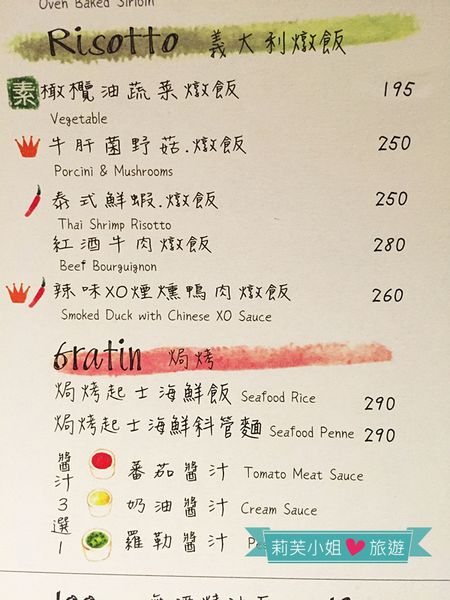 Oven Baked Sirloin
Risotto 義大利燉飯
素 橄欖油蔬菜燉飯 195
Vegetable
牛肝菌野菇.燉飯 250
Porcini & Mushrooms
泰式鮮蝦.燉飯 250
Thai Shrimp Risotto
紅酒牛肉燉飯 280
Beef Bourguignon
辣味XO煙燻鴨肉燉飯 260
Smoked Duck with Chinese XO Sauce
Gratin 焗烤
焗烤起士海鮮飯 Seafood Rice 290
焗烤起士海鮮斜管麵 Seafood Penne 290
醬汁3選1
蕃茄醬汁 Tomato Meat Sauce
奶油醬汁 Cream Sauce
羅勒醬汁
莉芙小姐 旅遊